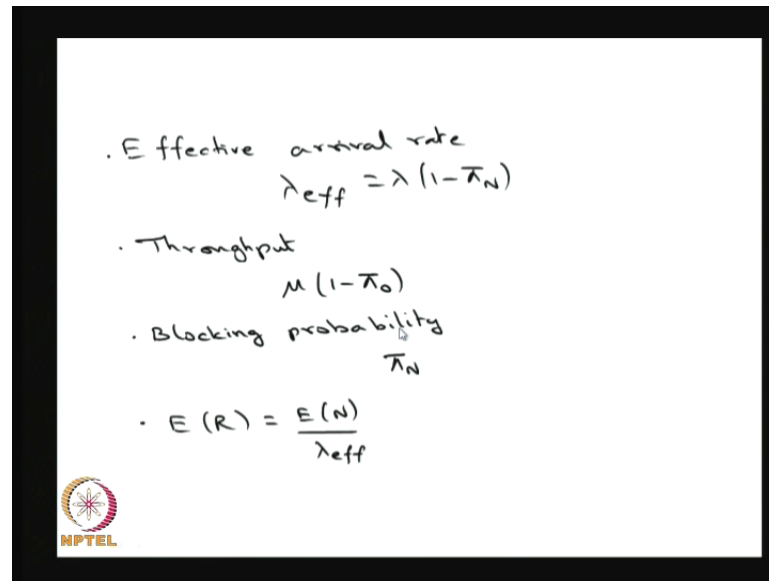 . Effective arrival rate
λeff = λ (1 - πN)
. Throughput
μ (1 - π0)
. Blocking probability
πN
. E (R) = E (N)
λeff
NPTEL